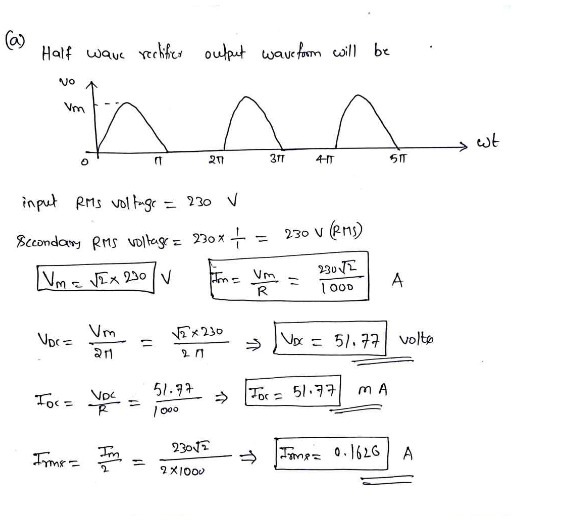 (a)
Half wave rectifier output waveform will be
Vo
Vm
0 π 2π 3π 4π 5π ωt
input RMS voltage = 230 V
Secondary RMS voltage = 230 x 1/1 = 230 V (RMS)
Vm = √2 x 230 V Im = Vm/R = 230√2/1000 A
VDC = Vm/2π = √2 x 230/2π ⇒ VDC = 51.77 volts
IDC = VDC/R = 51.77/1000 ⇒ IDC = 51.77 mA
Irms = Im/2 = 230√2/2x1000 ⇒ Irms = 0.1626 A